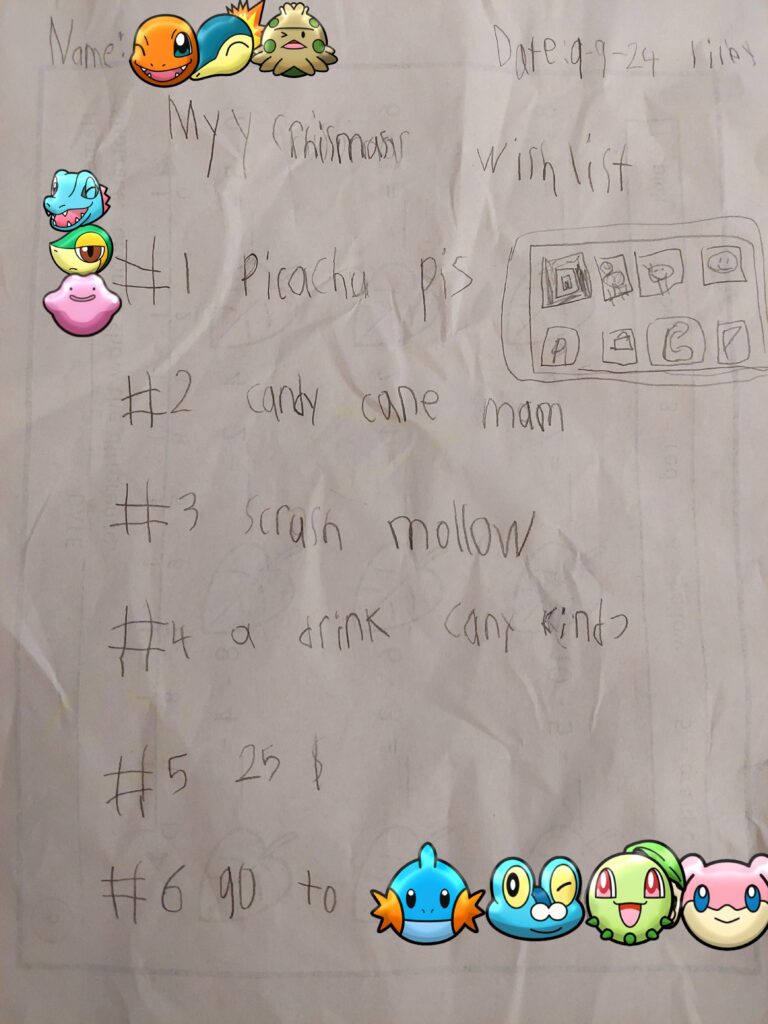 Name:
Date:9-9-24
My y Crhismasr wish list
#1 Picachu pis
#2 candy cane mam
#3 scrash mollow
#4 a drink (any kind)
#5 25 $
#6 go to